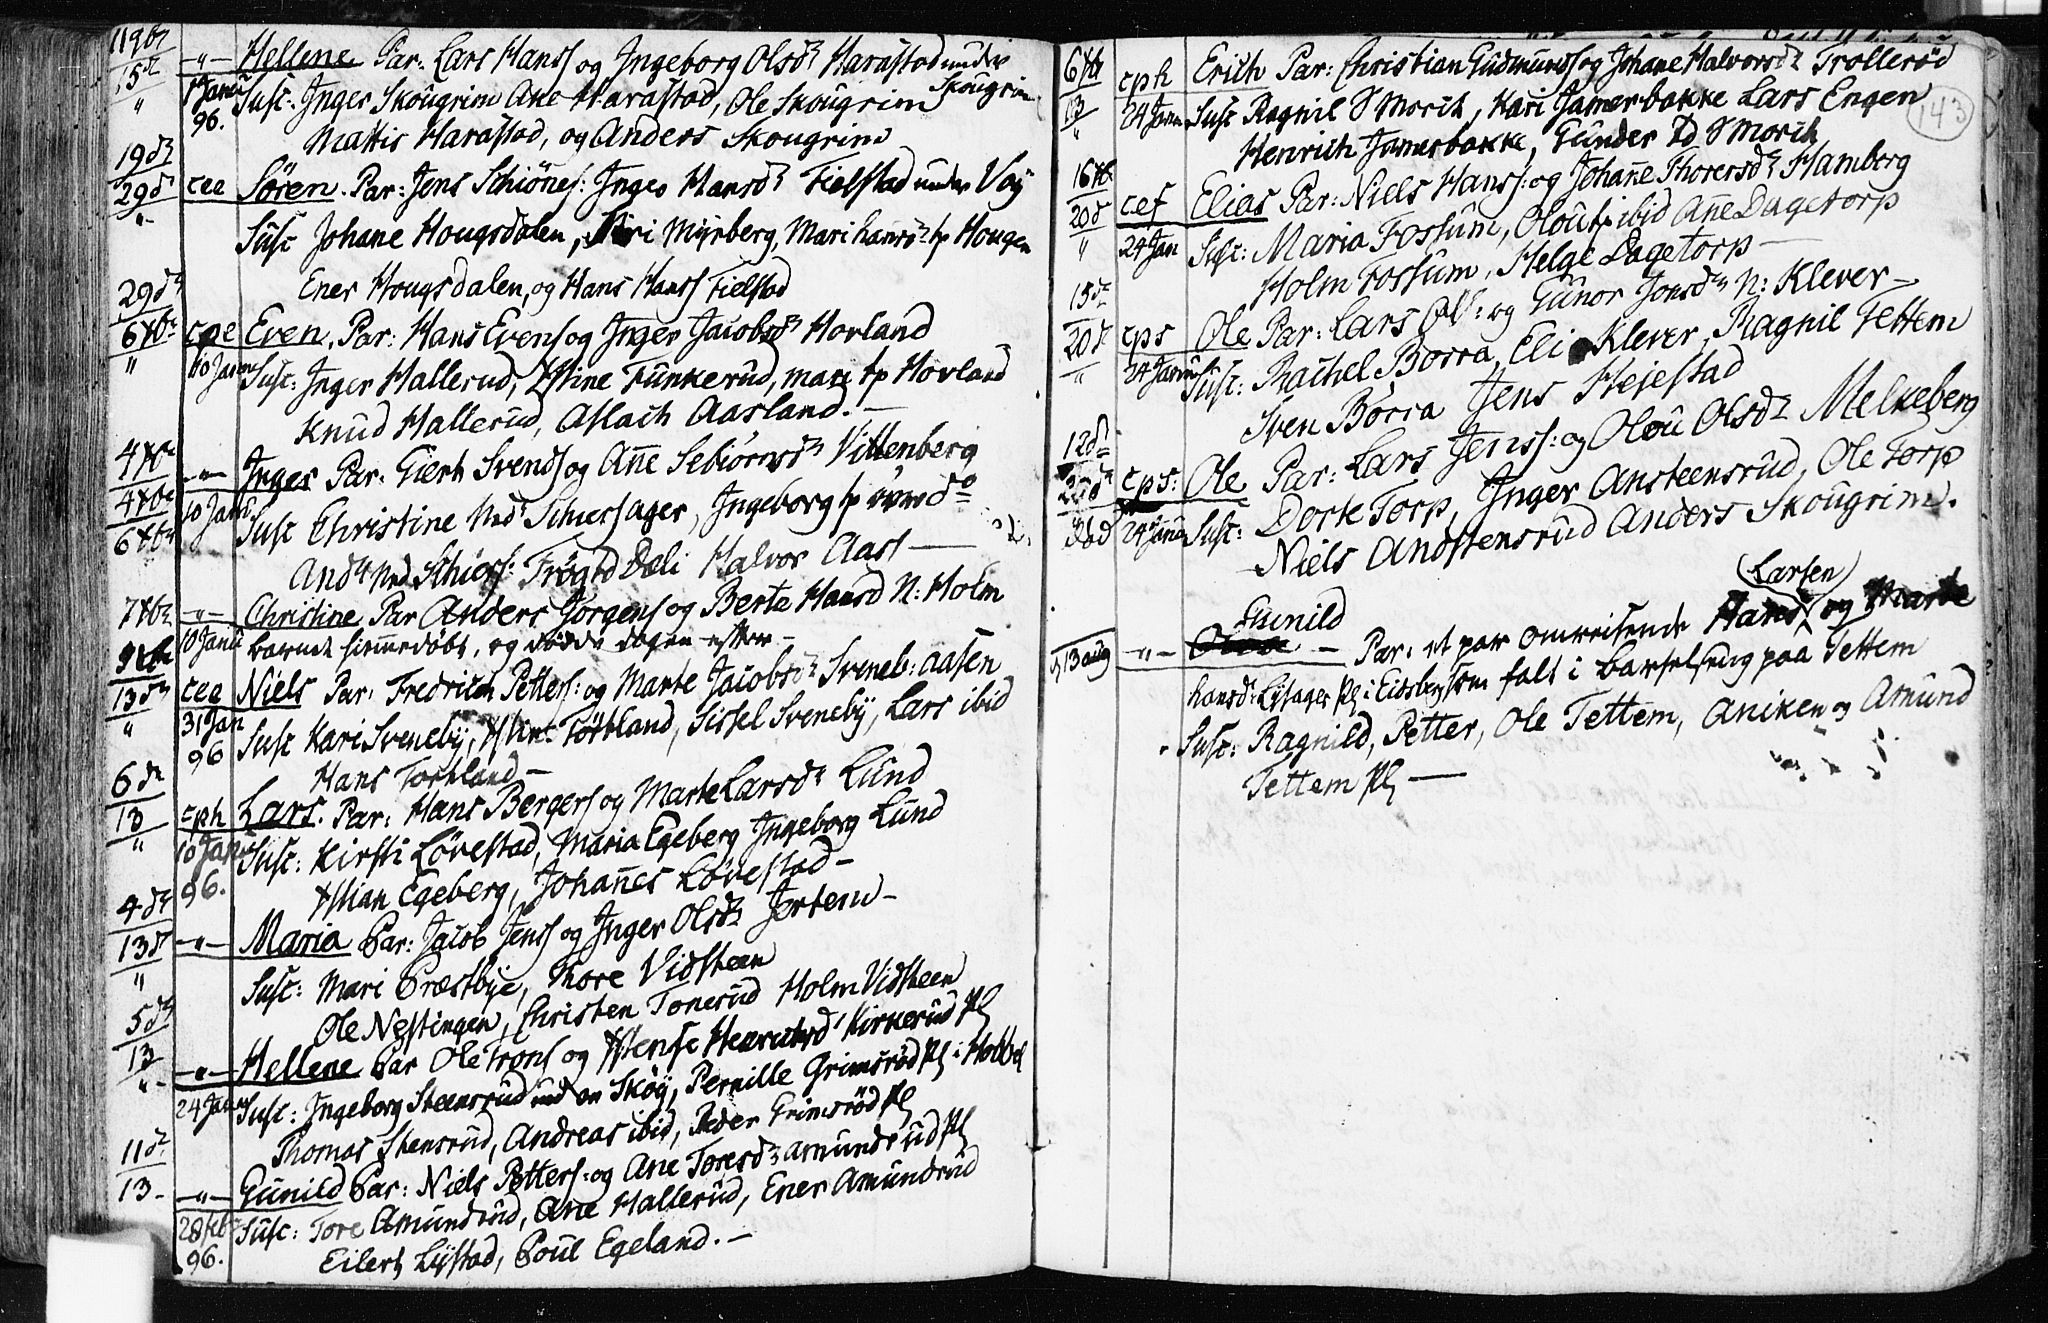 119br
15d
"
—"— Hellene Par: Lars Hanss og Ingeborg Olsdr Harastad under
1 Janu Susc: Inger Skougrim Ane Harastad, Ole Skougrim Skougrim
96. Mattis Harastad, og Anders Skougrim
19dr
29d
"
cee Søren. Par: Jens Schiønes: Inger Hansdr Fielstad under Voy
Susc Johane Hougsdalen, Siri Myrberg, Mari hansdr tp Hougen
Ener Hougsdalen, og Hans Hanss Fielstad
29dr
6Xbr
"
cpe Even, Par: Hans Evens og Inger Jacobsdr Hovland
10 Janu Susc: Inger Hallerud, Xstine Funkerud, mari tp Hovland
Knud Hallerud, Aslach Aasland. —
4Xbr
4Xbr
6Xbr
—"— Inger Par. Giert Svends og Añe Sebiørnsdr Vittenberg
10 Janu Susc Christine Nedr Schiersager, Ingeborg tp øvre do
Ands Ned Schiers: Frøgrd Dæli Halvor Aas —
7Xbr
—"— Christine Par Anders Jørgens og Berte Hansd N: Holm
10 Janu barnet hiemmedøbt, og døde dagen efter —
9Xbr
13dr
"
cee Niels Par: Fredrich Petters: og Marte Jacobsdr Sveneb: aasen
31 Jan Susc Kari Sveneby, Xstine Tørkland, Sissel Sveneby, Lars ibid
96 Hans Torkland —
6dr
13
"
cph Lars. Par: Hans Bergers og Marte Larsdr Lund
10 Janu Susc: Kirsti Løvestad, Maria Egeberg Ingeborg Lund
96. Xstian Egeberg, Johañes Løvestad —
4dr
13d
"
—"— Maria Par: Jacob Jens og Inger Olsdr Jertem —
Susc: Mari Præstbye, Thore Vidsteen
Ole Nestingen, Christen Tonerud Holm Vidsteen
5dr
13
"
—"— Hellene Par Ole Trons og Xstense Henrichsd Kirkerud Pl
24 Janu Susc: Ingeborg Steensrud Skøy, Pernille Grimsrød Pl i Hobbel
Thomas Stensrud, Andreas ibid, Peder Grimsrød Pl
11dr
13
—"— Gunild Par: Niels Petters: og Ane Toresdr amundrud Pl
28 febr Susc: Tore Amundrud, Ane Hallerud, Ener Amundrud
96. Eilert Lystad, Poul Egeland. —
143
6Xbr
13
"
cph Erich Par: Christian Gudmunds og Johane Halvorsdr Trollerød
24 Janu Susc Ragnil Smorch, Kari Jamerbakke Lars Engen
Henrich Jamerbakke, Gunder Smorch
16Xbr
20d
"
cef Elias Par: Niels Hans: og Johañe Thorersdr Hamberg
24 Jan Susc: Maria Fossum, Olou tp ibid Añe Dagetorp
Holm Fossum, Helge Dagetorp —
15dr
20d
"
cps Ole Par: Lars Ols: og Gunor Jonsdr N: Klever —
24 Janu Susc: Rachel Borra, Eli Klever, Ragnil Tettem
Sven Borra Jens Hejestad
12dr
20dr
død
cps: Ole Par: Lars Jenss: og Olou Olsdr Melkeberg
24 Janu Susc: Dorte Torp, Inger Ansteensrud, Ole Torp
Niels Anstensrud Anders Skougrim.
(Larsen)
Gunild
d 13 aug —"— — Par: et par omreisende Hans og Marte
hansdr Lysager Pl i Eidsberg som falt i barselseng paa Tettem
Susc: Ragnild, Petter, Ole Tettem, Aniken og Amund
Tettem Pl —